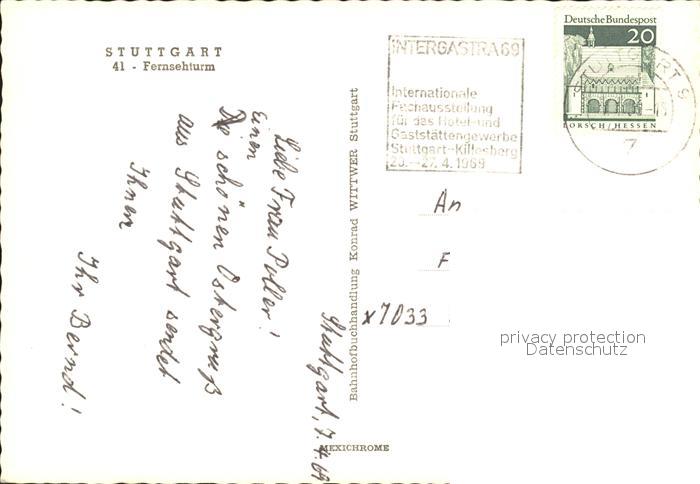 STUTTGART
41 - Fernsehturm
Stuttgart, 7.4.69
Liebe Frau Poller!
einen
schönen Ostergruß
aus Stuttgart sendet
Ihnen
Ihr Bernd!
Bahnhofbuchhandlung Konrad WITTWER Stuttgart
MEXICHROME
INTERGASTRA 69
Internationale
Fachausstellung
für das Hotel- und
Gaststättengewerbe
Stuttgart-Killesberg
20.-27.4.1969
Deutsche Bundespost
20
LORSCH / HESSEN
7
An
F
x7033
privacy protection
Datenschutz